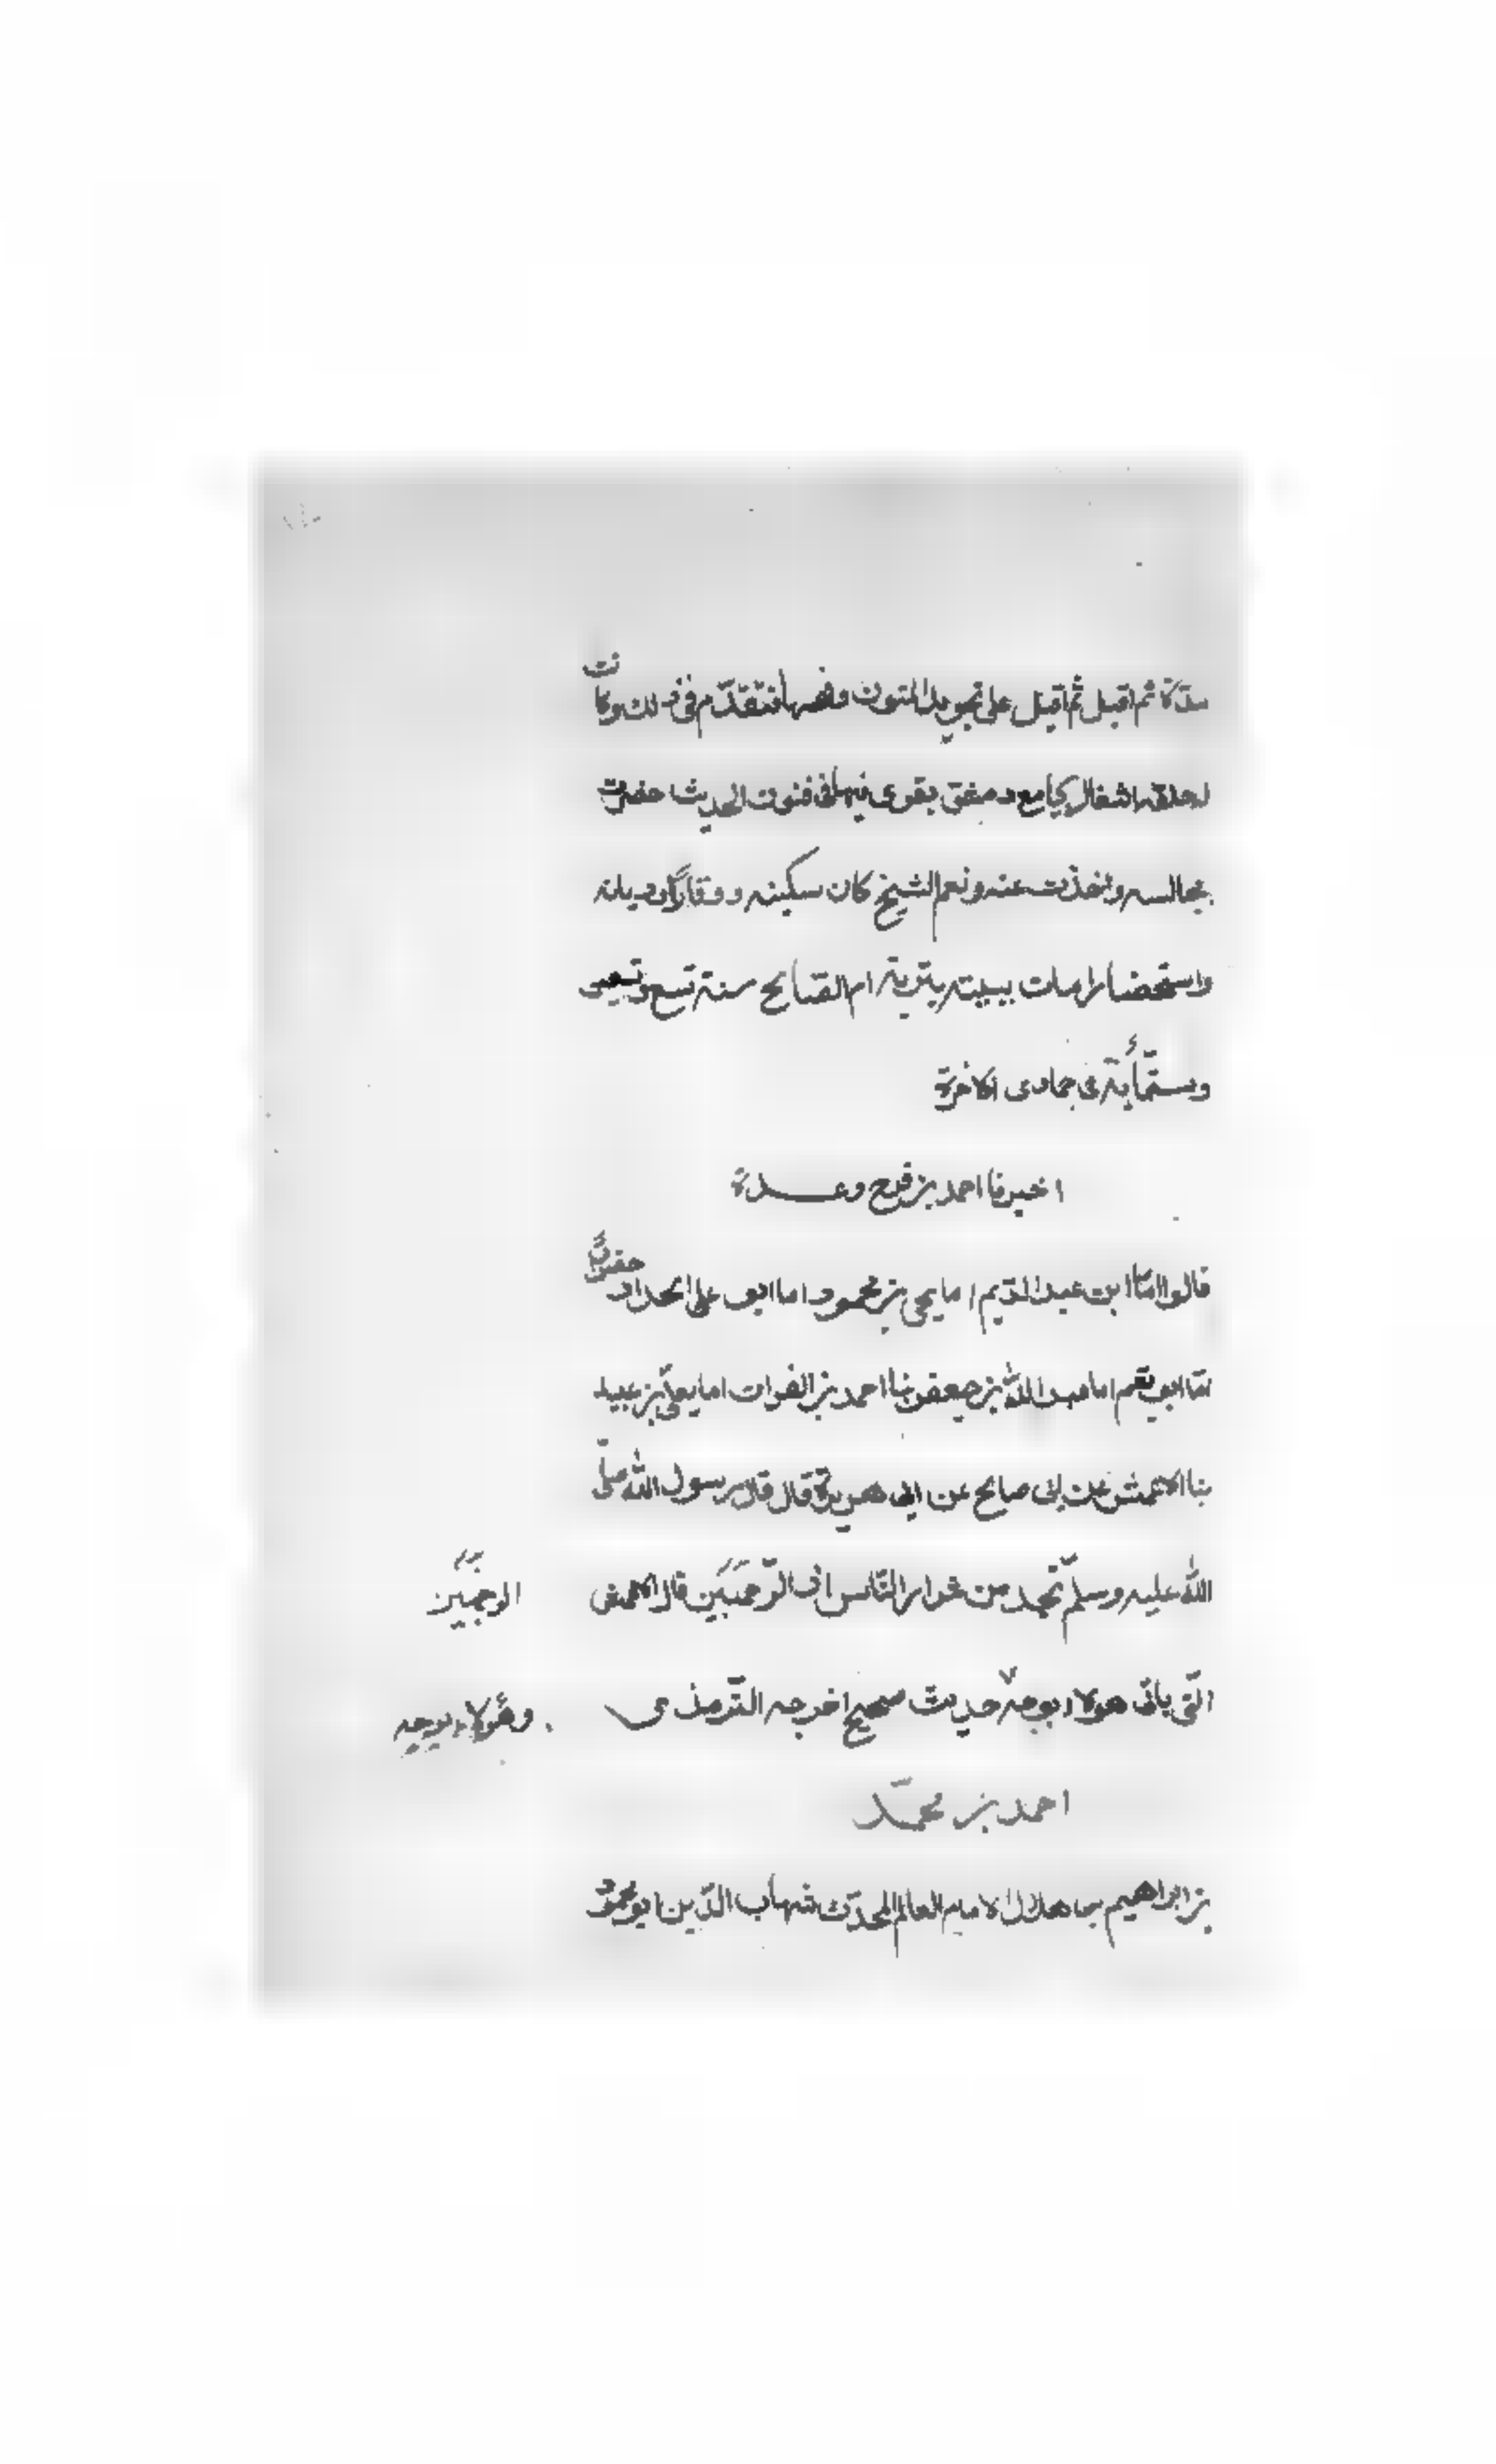 مدة ثم اقبل ثم اقبل على تجويد المتون وفهمها فتقدّم في ذلك وكانت
له حلقه اشغال بجامع دمشق يقرى فيها فنون الحديث حضرت
مجالسه واخذت عنه ونعم الشيخ كان سكينه ووقارًا وديانه
واستحضارا مات ببيته بتربة ام الصالح سنة تسع وتسعين
وستمأية في جمادى الاخرة
اخبرنا احمد بن فرح وعدة
قالوا انا ابن عبد الدّيم انا يحيى بن محمود انا ابو على الحداد حضورًا
ثنا ابو نعيم انا عبد الله بن جعفر بنا احمد بن الفرات انا يعلى بن عبيد
بنا الاعمش عن ابى صالح عن ابى هريرة قال قال رسول الله صلّى
الله عليه وسلّم تجد من شرار النّاس ذى الوجهين قال الاعمش
الوجهين
الّتى ياتى هولاء بوجه حديث صحيح اخرجه التّرمذى
وهؤلاء بوجه
احمد بن محمّد
بن ابراهيم بن هلال الامام العالم المحدّث شهاب الدّين ابو محمود